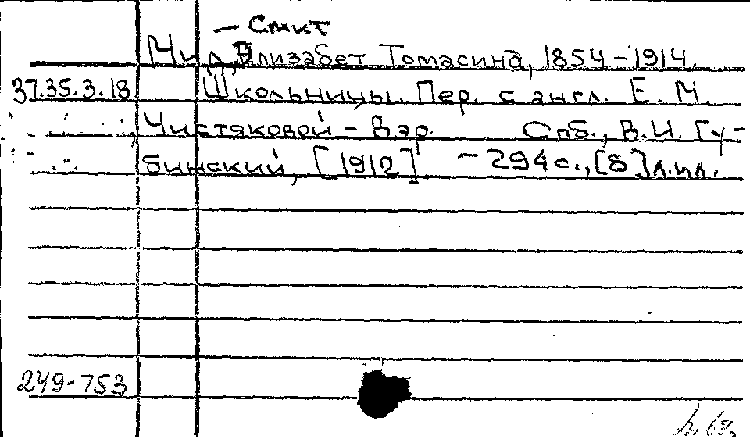 — Смит
Мид, Элизабет Томасина, 1854-1914.
37.35.3.18 Школьницы. Пер. с англ. Е. М.
Чистяковой-Вэр. Спб., В.И. Гу-
бинский, [1912]. - 294 с., [8] л.ил.
249-753